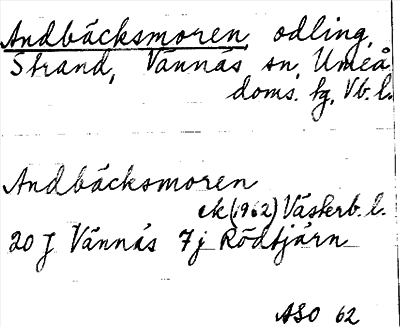 Andbäcksmoren, odling,
Strand, Vännäs sn, Umeå
doms. hg, Vb. l.
Andbäcksmoren
ek (1962) Västerb. l.
20 J Vännäs 7j Rödtjärn
ASO 62